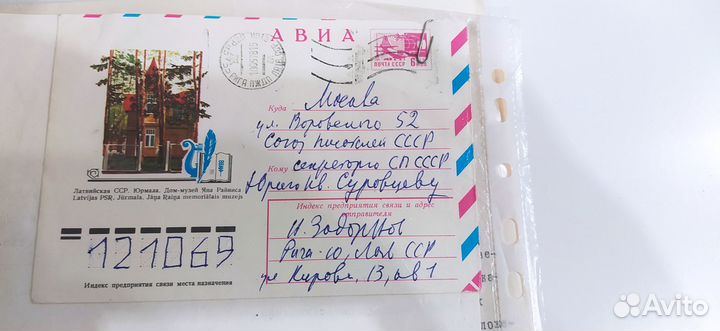 АВИА
ПОЧТА СССР 6
Куда Москва
ул. Воровского 52
Союз писателей СССР
Кому секретарю СП СССР
Юрию Ив. Суровцеву
Латвийская ССР. Юрмала. Дом-музей Яна Райниса
Latvijas PSR. Jūrmala. Jāņa Raiņa memoriālais muzejs
Индекс предприятия связи и адрес отправителя
Н. Задорнов
Рига-10, Латв ССР
ул Кирова, 13, кв 1
121069
Индекс предприятия связи места назначения
Avito